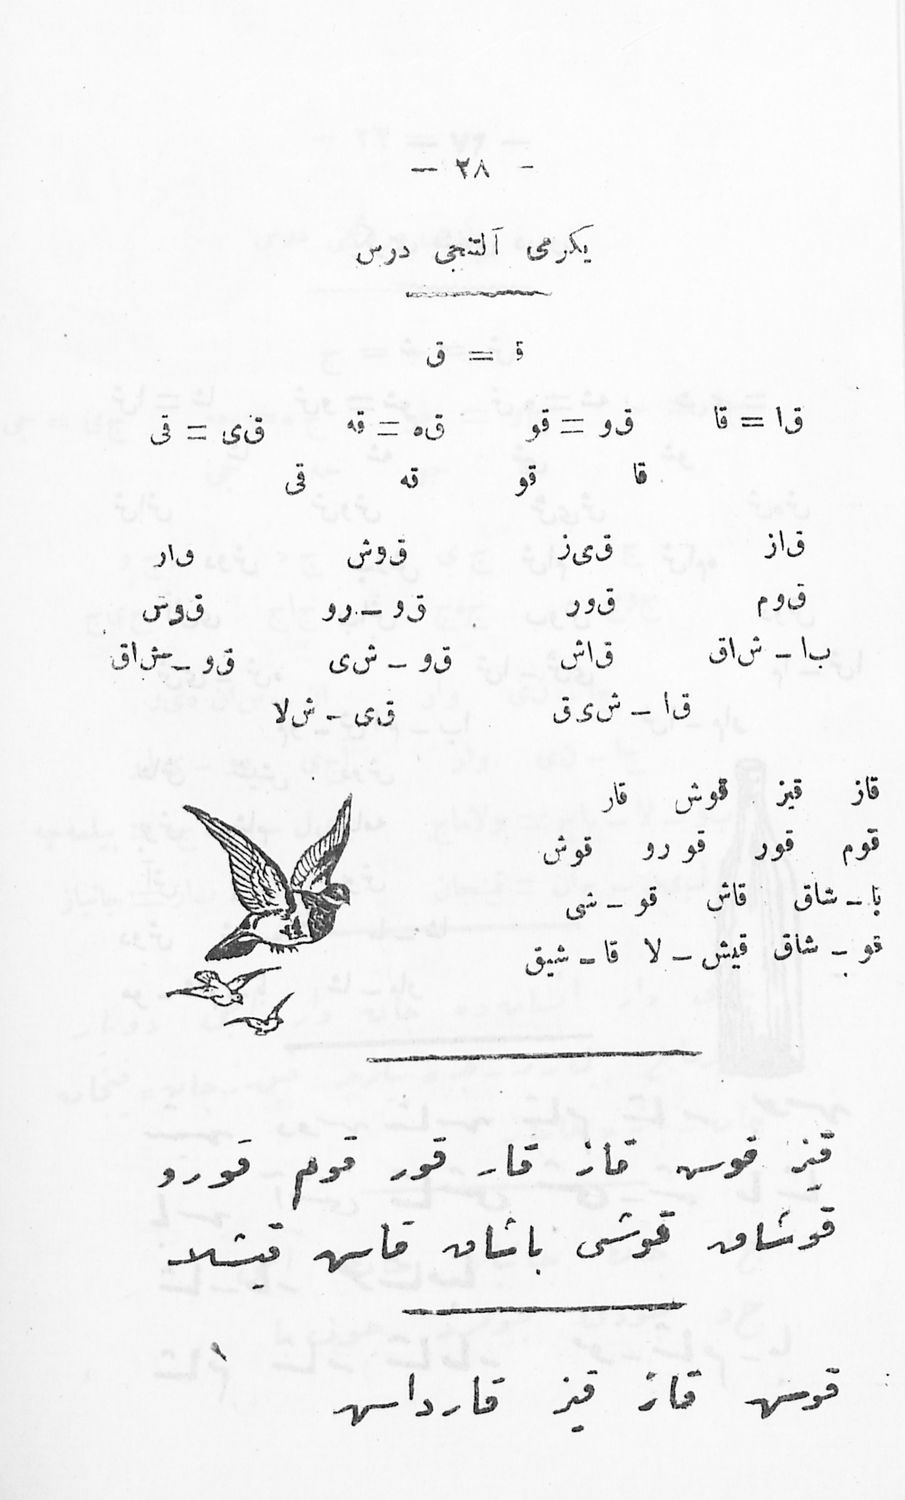 — ٢٨ —
يكرمی آلتنجی درس
ق‍ = ق
ق‌ا = قا ق‌و = قو ق‌ه = قه ق‌ی = قی
قا قو قه قی
ق‌از ق‌ی‌ز ق‌وش ق‌ار
ق‌وم ق‌ور ق‌و – رو ق‌وش
ب‌ا – ش‌اق ق‌اش ق‌و – ش‌ی ق‌و – ش‌اق
ق‌ا – ش‌ی‌ق ق‌ی – ش‌لا
قاز قیز قوش قار
قوم قور قو رو قوش
با – شاق قاش قو – شی
قو – شاق قیش – لا قا – شیق
قیز قوش قاز قار قور قوم قورو
قوشاق قوشی باشاق قاش قیشلا
قوش قاز قیز قارداش